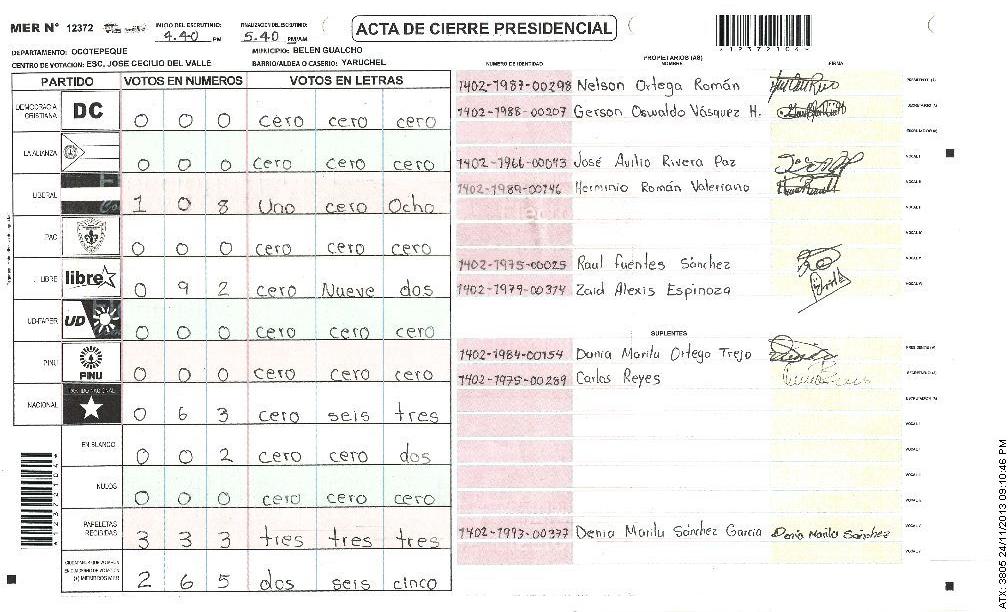 MER N° 12372
INICIO DEL ESCRUTINIO: 4.40 PM
FINALIZACION DEL ESCRUTINIO: 5.40 PM/AM
ACTA DE CIERRE PRESIDENCIAL
DEPARTAMENTO: OCOTEPEQUE
MUNICIPIO: BELEN GUALCHO
CENTRO DE VOTACION: ESC. JOSE CECILIO DEL VALLE
BARRIO/ALDEA O CASERIO: YARUCHEL
PARTIDO VOTOS EN NUMEROS VOTOS EN LETRAS
DEMOCRACIA CRISTIANA DC 0 0 0 cero cero cero
LA ALIANZA 0 0 0 cero cero cero
LIBERAL 1 0 8 Uno cero Ocho
PAC 0 0 0 cero cero cero
LIBRE libre 0 9 2 cero Nueve dos
UD-FAPER UD 0 0 0 cero cero cero
PINU PINU 0 0 0 cero cero cero
NACIONAL 0 6 3 cero seis tres
EN BLANCO 0 0 2 cero cero dos
NULOS 0 0 0 cero cero cero
PAPELETAS RECIBIDAS 3 3 3 tres tres tres
2 6 5 dos seis cinco
PROPIETARIOS (AS)
NUMERO DE IDENTIDAD NOMBRE FIRMA
1402-1987-00298 Nelson Ortega Román
1402-1988-00207 Gerson Oswaldo Vásquez H.
1402-1966-00043 José Avilio Rivera Paz
1402-1989-00146 Herminio Román Valeriano
1402-1975-00025 Raul Fuentes Sánchez
1402-1979-00374 Zaid Alexis Espinoza
SUPLENTES
1402-1984-00154 Dania Marilu Ortega Trejo
1402-1975-00289 Carlos Reyes
1402-1993-00377 Denia Marilu Sánchez Garcia Denia Marilu Sánchez
ATX: 3805 24/11/2013 09:10:46 PM